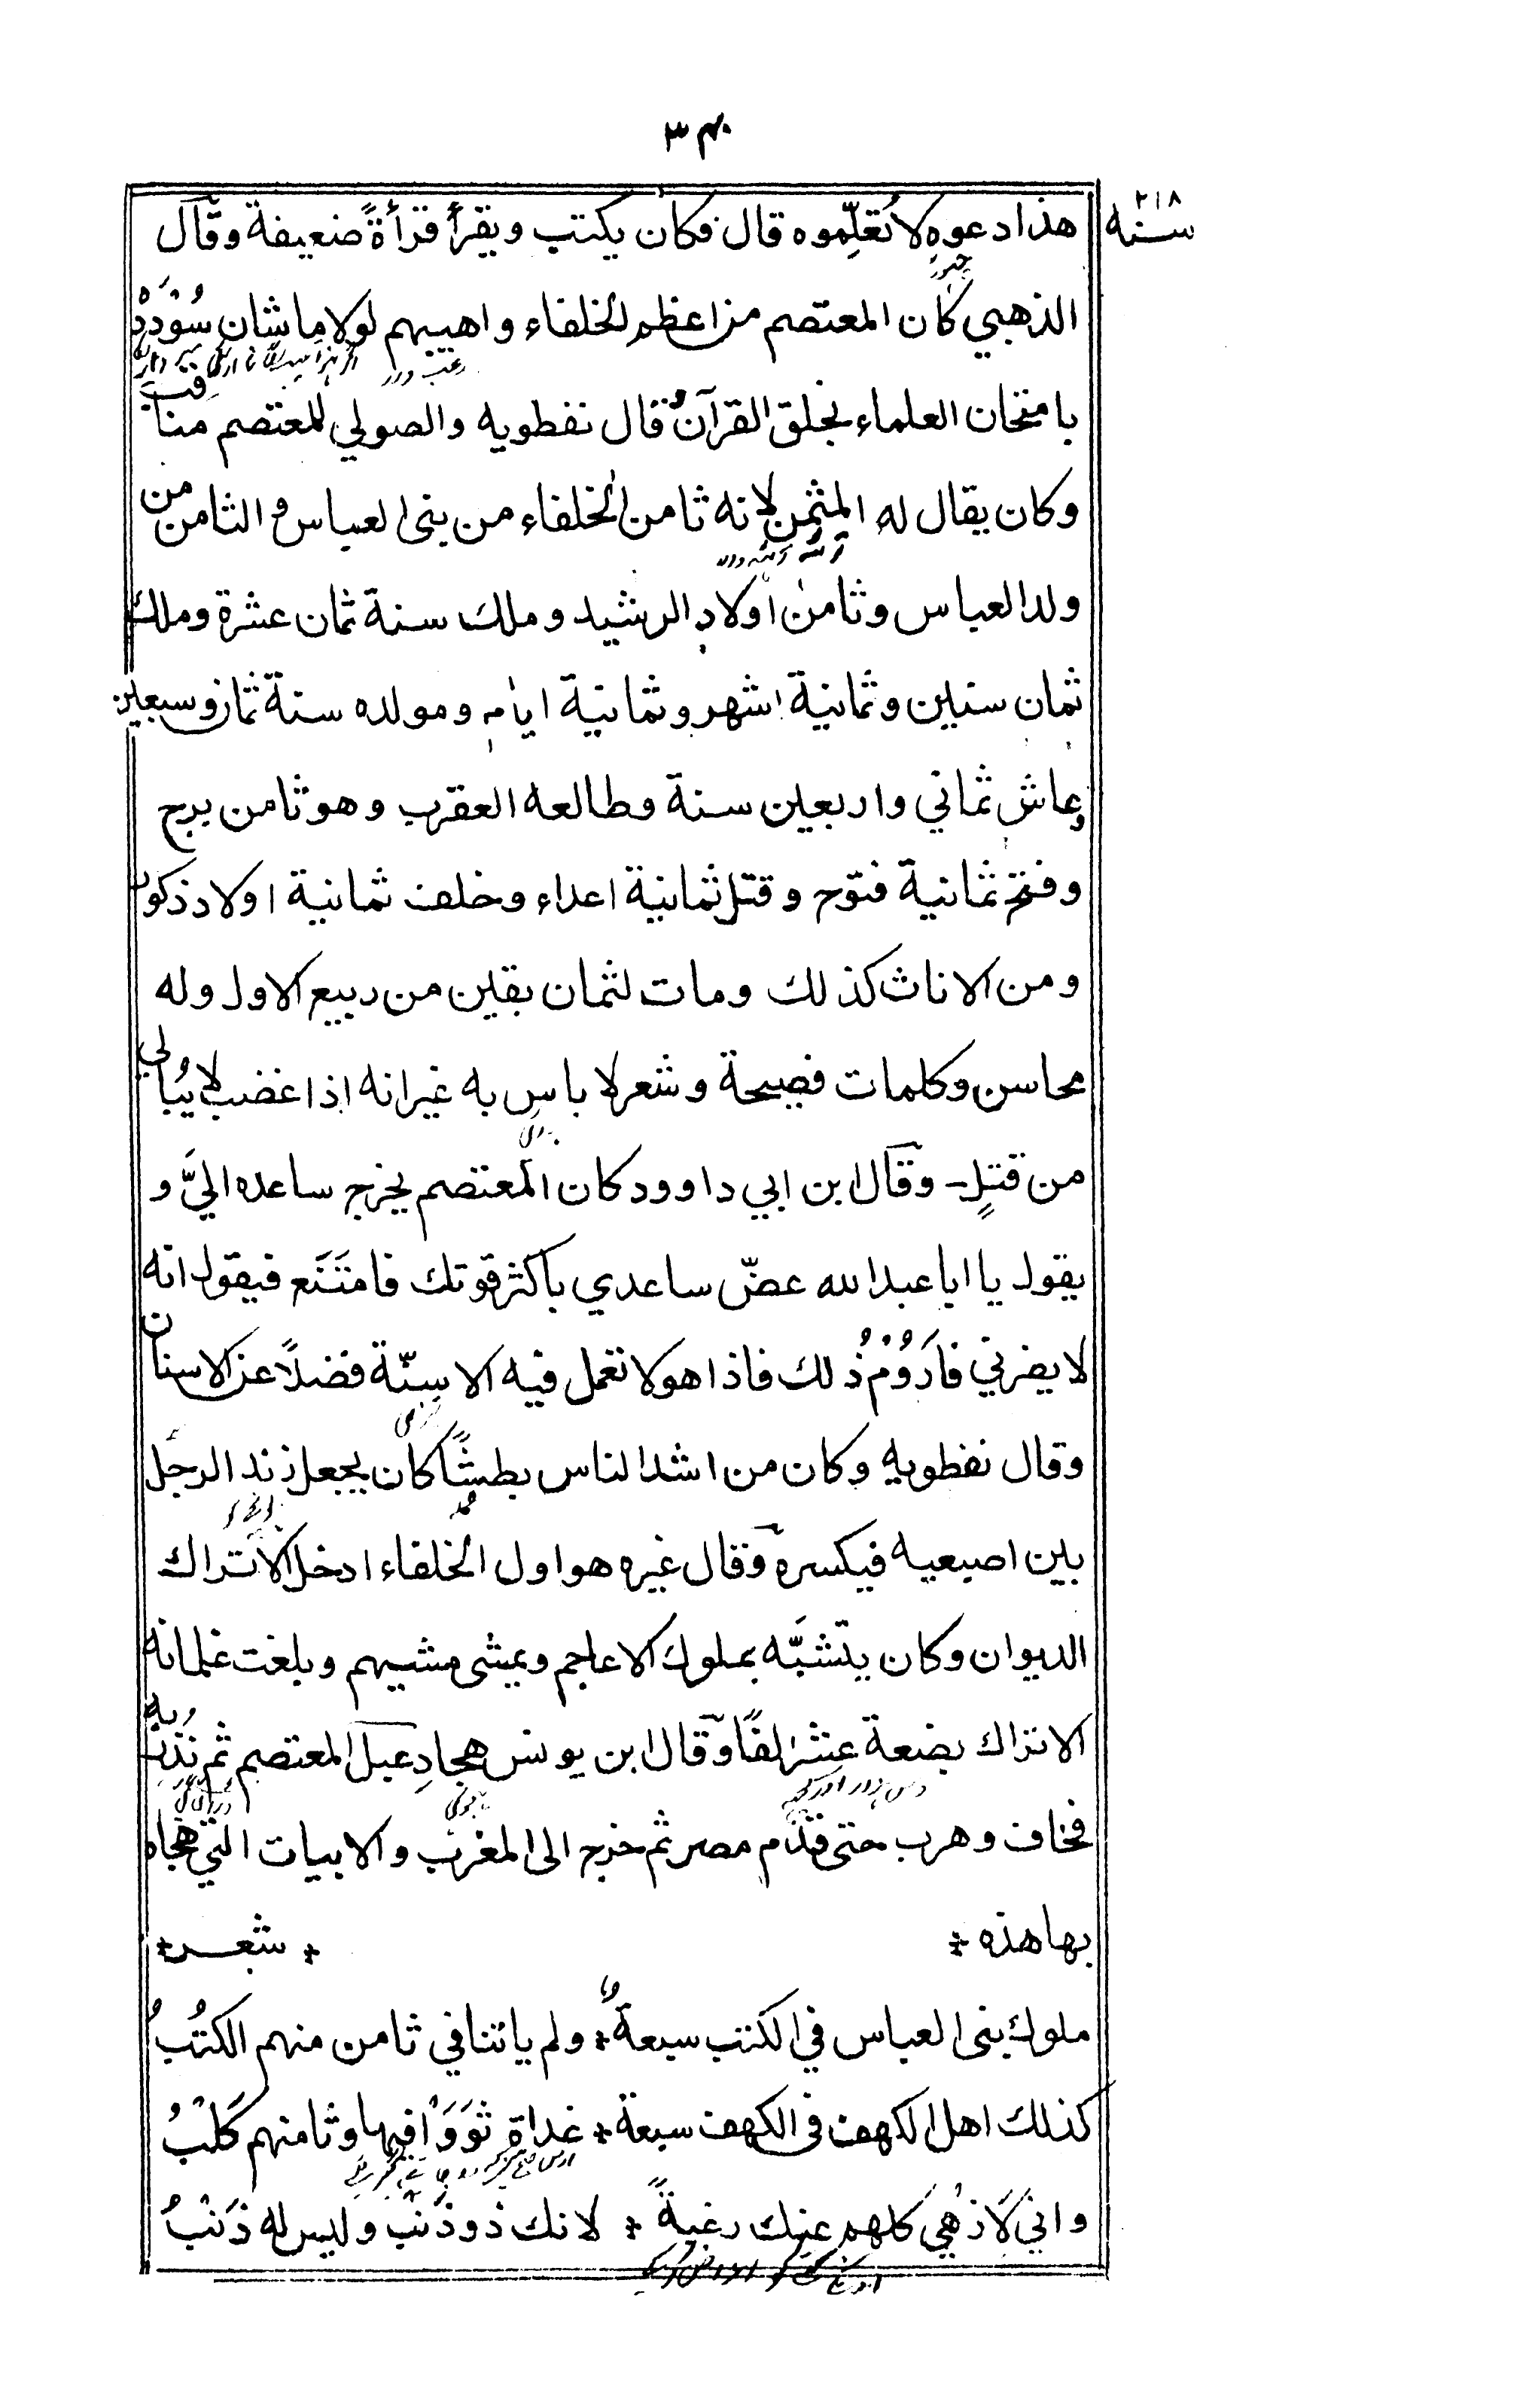 ٣٤٠
سنه ٢١٨
هذا دعوه لا تُعَلِّموه قال فكان يكتب و يقرأ قرأةً ضعيفة وقال
الذهبي كان المعتصم من اعظم الخلفاء و اهيبهم لولا ما شان سُؤْدَدَهُ
بامتحان العلماء بخلق القرآن قال نفطويه والصولي للمعتصم مناقب
وكان يقال له المثمن لانه ثامن الخلفاء من بنى العباس و الثامن من
ولد العباس وثامن اولاد الرشيد وملك سنة ثمان عشرة وملك
ثمان سنين وثمانية اشهر وثمانية ايام ومولده سنة ثمان وسبعين
وعاش ثماني واربعين سنة وطالعه العقرب وهو ثامن برج
وفتح ثمانية فتوح وقتل ثمانية اعداء وخلف ثمانية اولاد ذكور
ومن الاناث كذلك ومات لثمان بقين من ربيع الاول وله
محاسن وكلمات فصيحة وشعر لا باس به غير انه اذا غضب لا يُبالي
من قتلٍ - وقال ابن ابي داوود كان المعتصم يخرج ساعده اليَّ و
يقول يا ابا عبد الله عضّ ساعدي باكثر قوتك فامتَنَع فيقول انه
لا يضرني فارَوُمُ ذلك فاذا هو لا تعمل فيه الاسِنّة فضلاً عن الاسنان
وقال نفطويه وكان من اشد الناس بطشًا كان يجعل زند الرجل
بين اصبعيه فيكسره وقال غيره هو اول الخلفاء ادخل الاتراك
الديوان وكان يتشبَّه بملوك الاعاجم ويمشى مشيهم وبلغت غلمانه
الاتراك بضعة عشر الفًا وقال ابن يونس هجا دِعبل المعتصم ثم نُذِرَ به
فخاف وهرب حتى قدم مصر ثم خرج الى المغرب والابيات التي هجاه
بها هذه ÷ ÷ شعر ÷
ملوك بنى العباس في الكتب سبعةٌ ÷ ولم ياتنا في ثامن منهم الكُتُبُ
كذلك اهل الكهف فى الكهف سبعة ÷ غداة ثَوَوْا فيها وثامنهم كَلْبُ
واني لَازْهي كلهم عنك رغبةً ÷ لانك ذو ذَنْبٍ وليس له ذَنْبُ